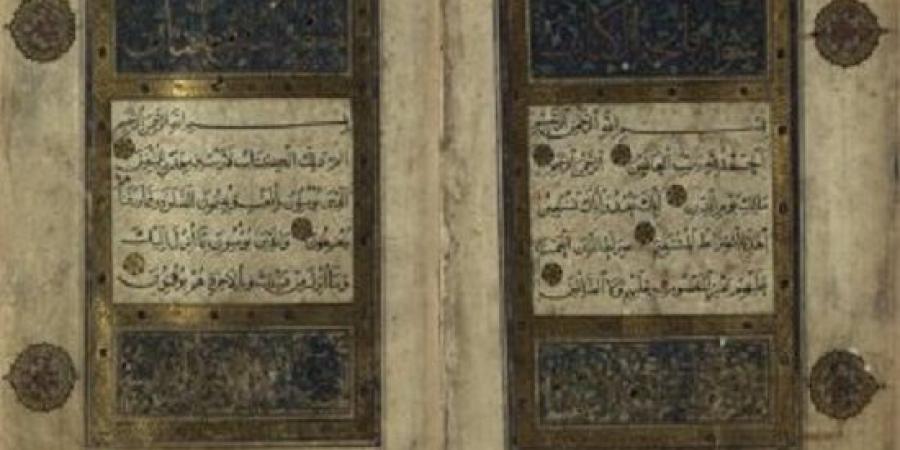 سورة فاتحة الكتاب
بسم الله الرحمن الرحيم
الحمد لله رب العالمين الرحمن الرحيم
مالك يوم الدين اياك نعبد واياك نستعين
اهدنا الصراط المستقيم صراط الذين انعمت
عليهم غير المغضوب عليهم ولا الضالين
بسم الله الرحمن الرحيم
الم ذلك الكتاب لا ريب فيه هدى للمتقين
الذين يؤمنون بالغيب ويقيمون الصلوة ومما رزقناهم
ينفقون والذين يؤمنون بما انزل اليك
وما انزل من قبلك وبالاخرة هم يوقنون